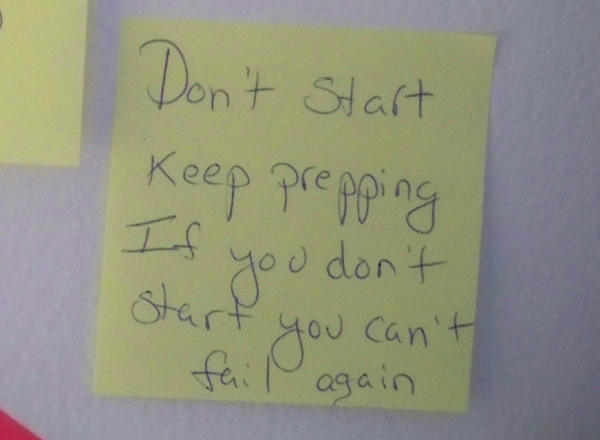 Don't Start
Keep prepping
If you don't
start you can't
fail again